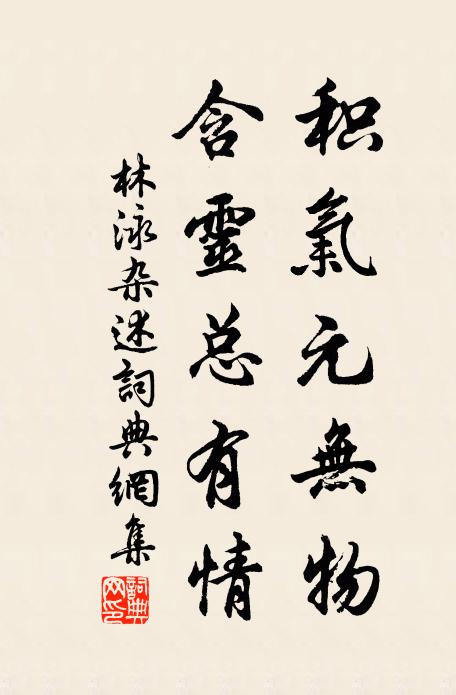 积氣元無物
含靈总有情
林泳杂述詞典網集
詞典网印